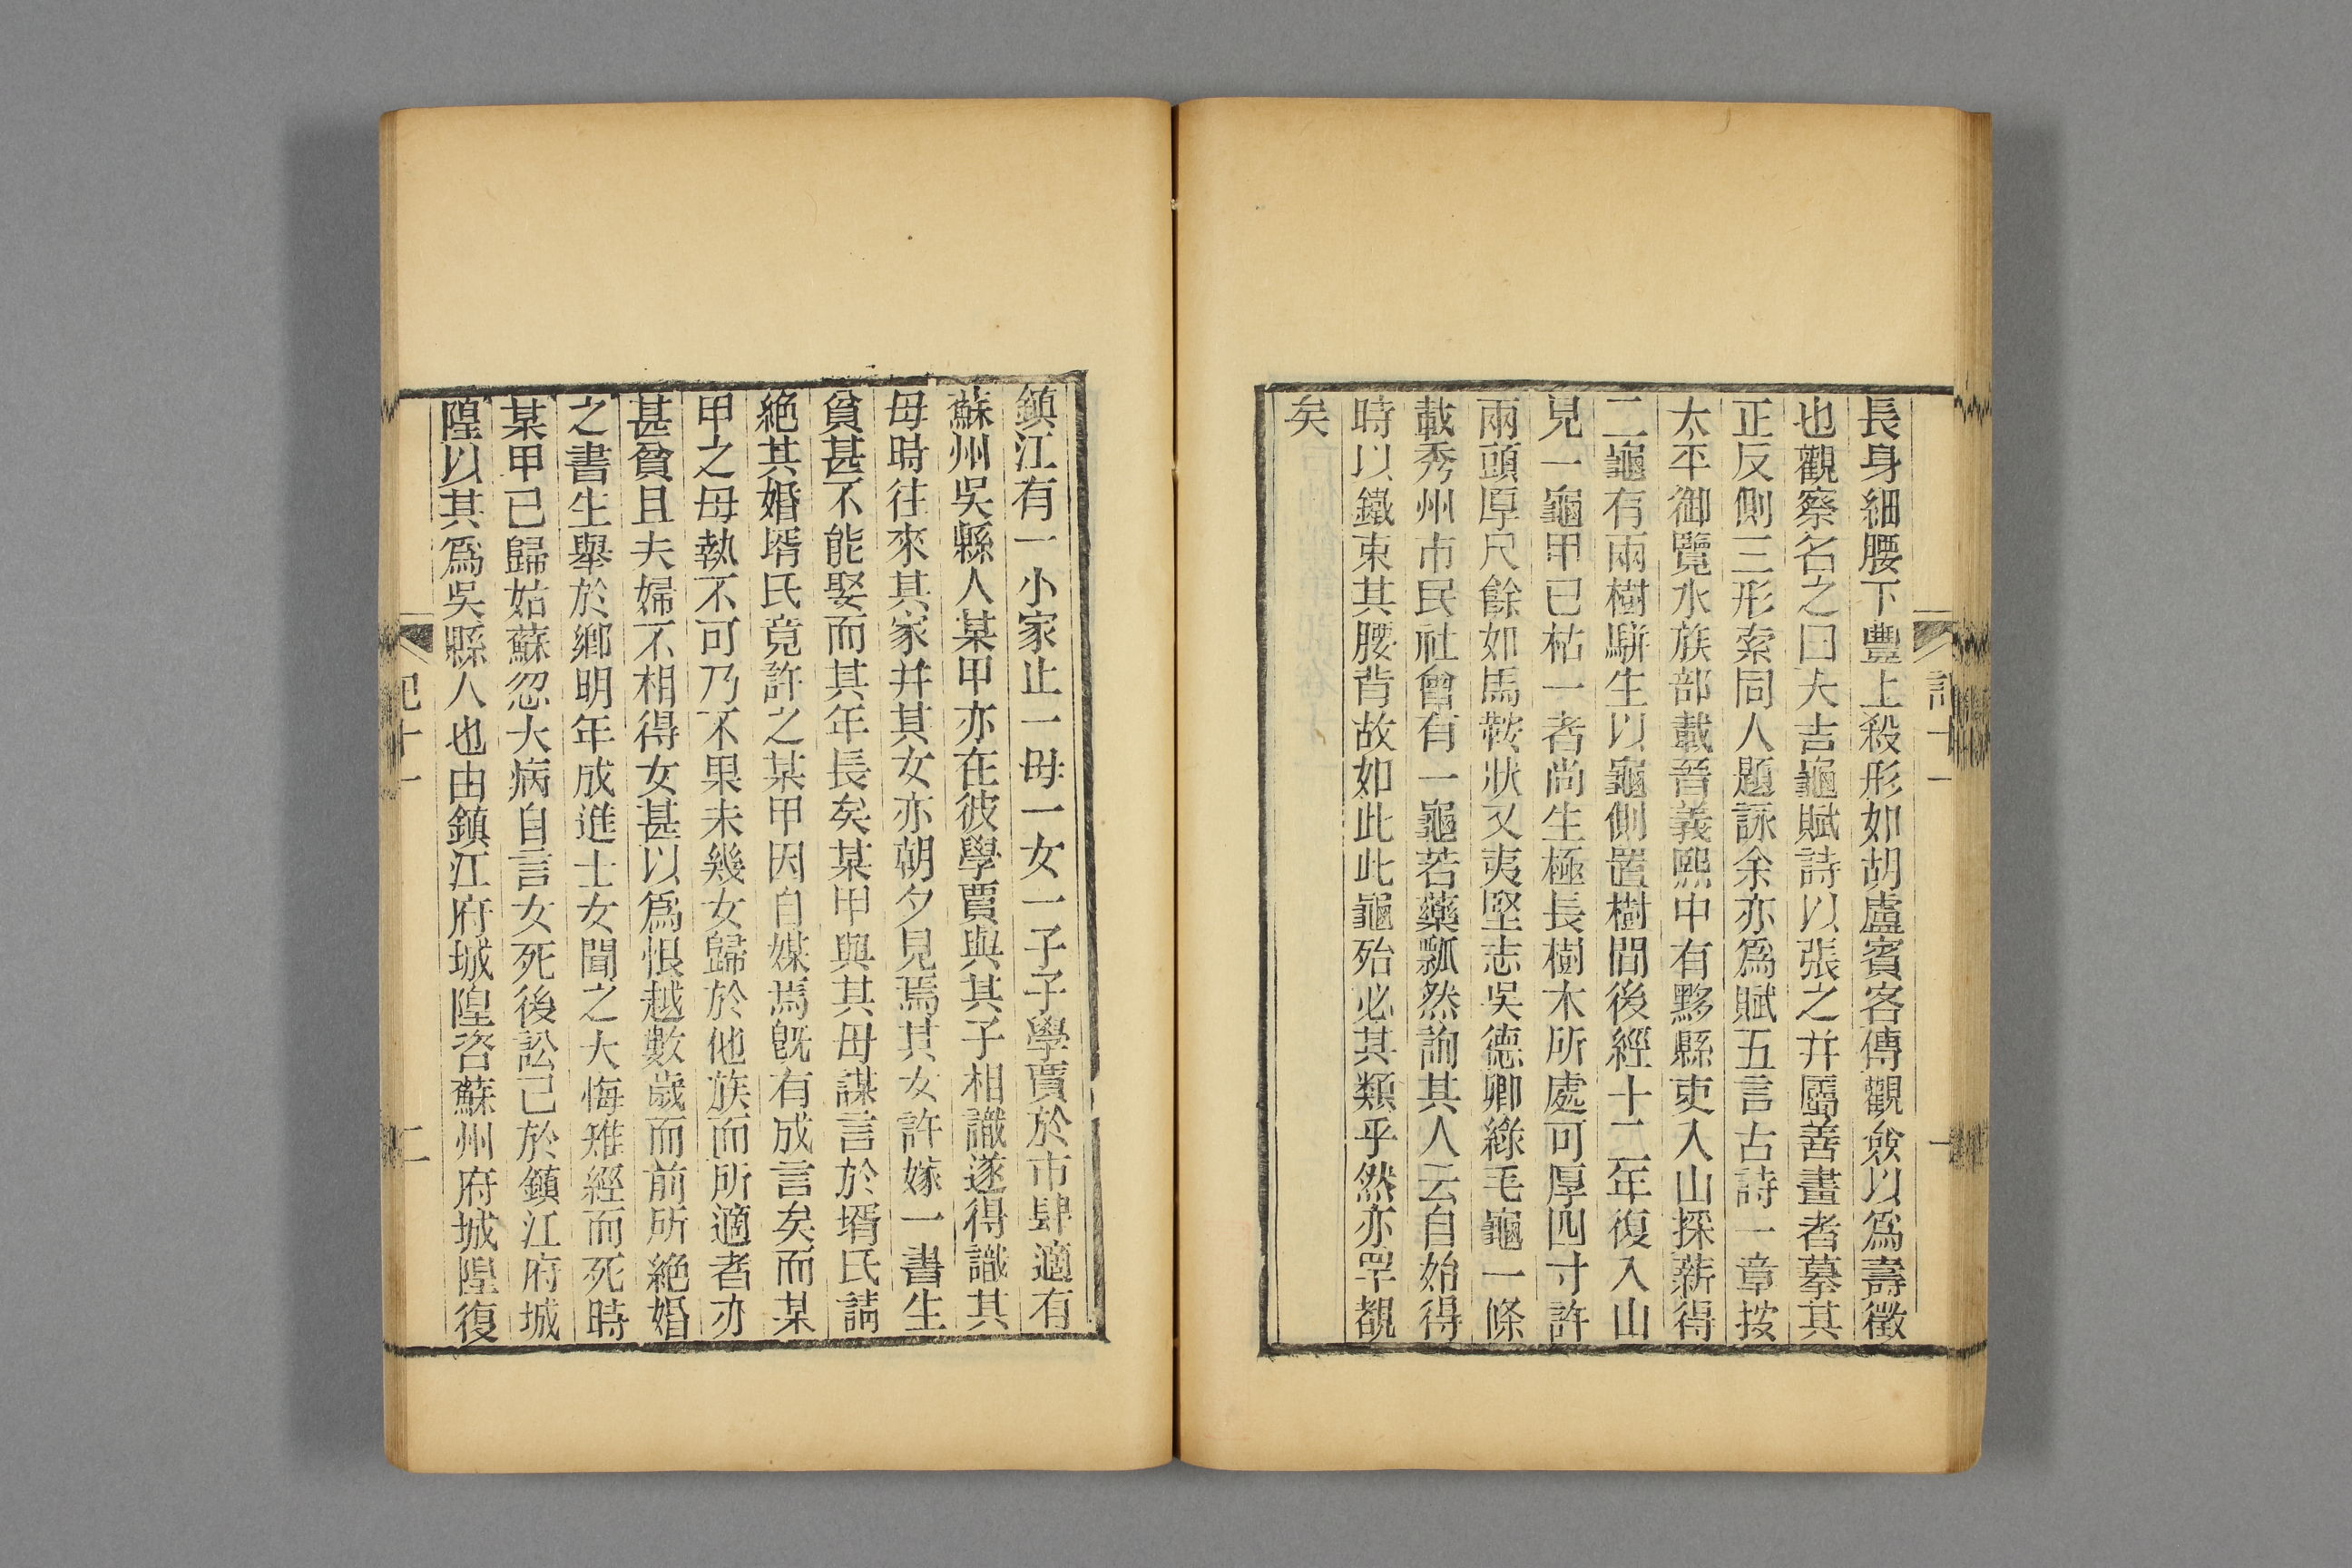 長身細腰下豐上殺形如胡盧賓客傳觀僉以爲壽徵
也觀察名之曰大吉龜賦詩以張之并屬善畫者摹其
正反側三形索同人題詠余亦爲賦五言古詩一章按
太平御覽水族部載晉義熙中有黟縣吏入山採薪得
二龜有兩樹駢生以龜側置樹間後經十二年復入山
見一龜甲已枯一者尚生極長樹木所處可厚四寸許
兩頭厚尺餘如馬鞍狀又夷堅志吳德卿綠毛龜一條
載秀州市民社會有一龜若藥瓢然詢其人云自始得
時以鐵束其腰背故如此此龜殆必其類乎然亦罕覩
矣
鎮江有一小家止一母一女一子子學賈於市肆適有
蘇州吳縣人某甲亦在彼學賈與其子相識遂得識其
母時往來其家并其女亦朝夕見焉其女許嫁一書生
貧甚不能娶而其年長矣某甲與其母謀言於壻氏請
絕其婚壻氏竟許之某甲因自媒焉旣有成言矣而某
甲之母執不可乃不果未幾女歸於他族而所適者亦
甚貧且夫婦不相得女甚以爲恨越數歲而前所絕婚
之書生舉於鄉明年成進士女聞之大悔雉經而死時
某甲已歸姑蘇忽大病自言女死後訟己於鎮江府城
隍以其爲吳縣人也由鎮江府城隍咨蘇州府城隍復
記十一
二